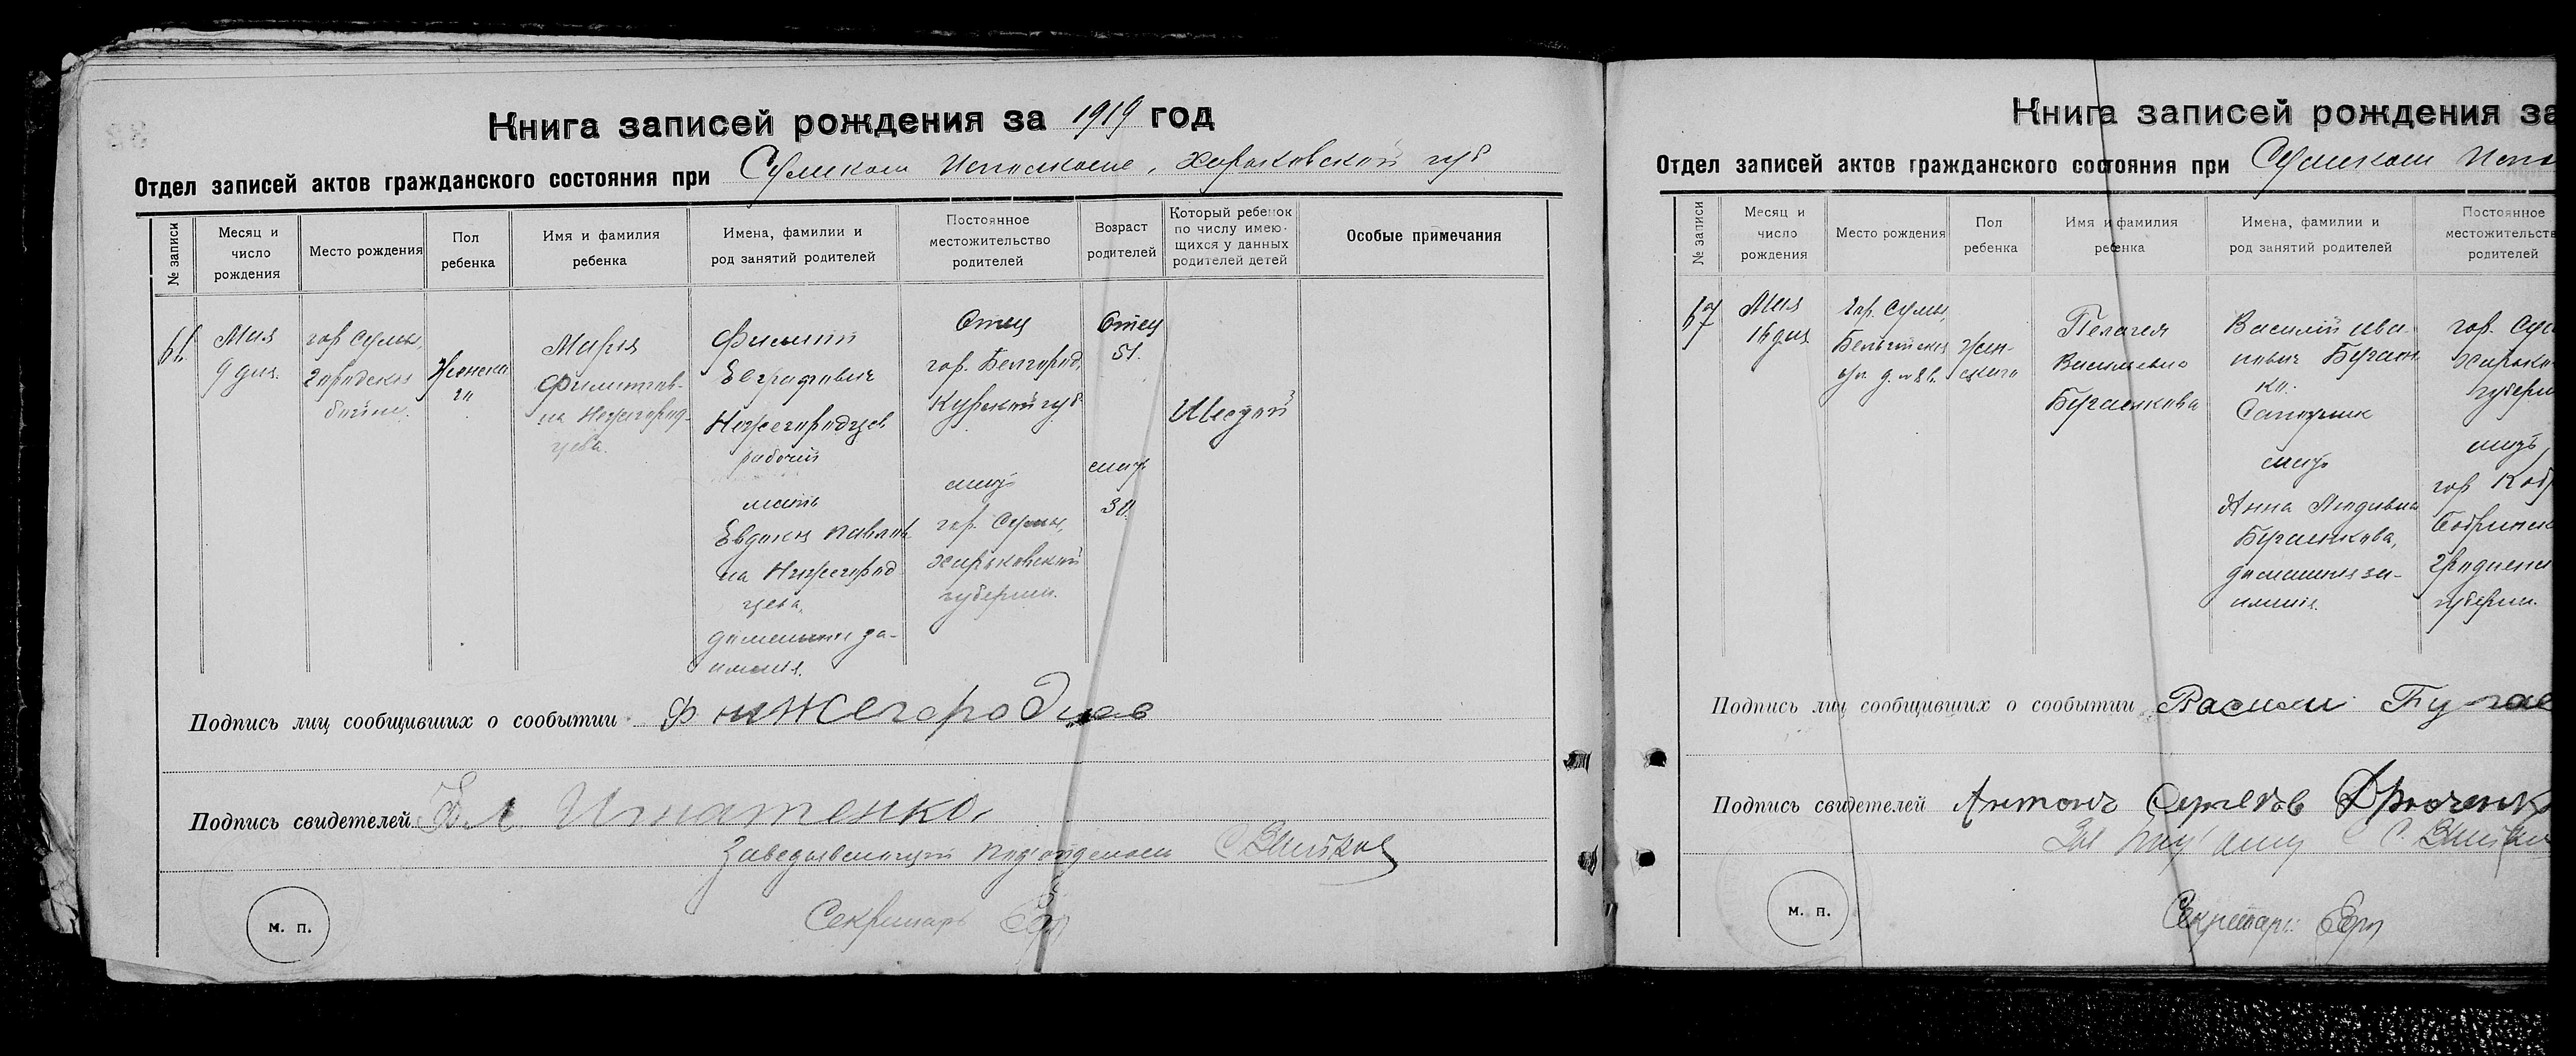 Книга записей рождения за 1919 год
Отдел записей актов гражданского состояния при Сумском Исполкоме, Харьковской губ
№ записи
Месяц и
число
рождения
Место рождения
Пол
ребенка
Имя и фамилия
ребенка
Имена, фамилии и
род занятий родителей
Постоянное
местожительство
родителей
Возраст
родителей
Который ребенок
по числу имею-
щихся у данных
родителей детей
Особые примечания
66.
Мая
9 дня.
гор Сумы,
Городская
бойня.
Женска
го
Мария
Филиппов-
на Нежегород-
цева.
Филипп
Евграфович
Нежегородцев
рабочий
мать
Евдокия Павлов
на Нежегород
цева,
домашния за-
нятия.
Отец
гор. Белгород,
Курской губ
мать
гор. Сумы,
Харьковской
губернии.
Отец
51.
мать
30.
Шестой
Подпись лиц сообщивших о сообытии Ф нижегородцев
Подпись свидетелей Игнатенко
Заведывающий подотделом
Секретарь
м. п.
Книга записей рождения за
Отдел записей актов гражданского состояния при Сумском Испо
№ записи
Месяц и
число
рождения
Место рождения
Пол
ребенка
Имя и фамилия
ребенка
Имена, фамилии и
род занятий родителей
Постоянное
местожительств
родителей
67
Мая
16 дня
Гор. Сумы,
Бельгийская
Жен-
скаго
Пелагея
Васильевна
Бугаенкова
Василий Ива
нович Бугаен
ко.
Сапожник
мать
Анна
Бугаенкова,
домашния за-
нятия.
гор. Сум
Харько
губерн
мать,
гор Коб
Гродненс
губерни.
Подпись лиц сообщивших о сообытии Васили Бугае
Подпись свидетелей Антонъ
Секретарь
м. п.